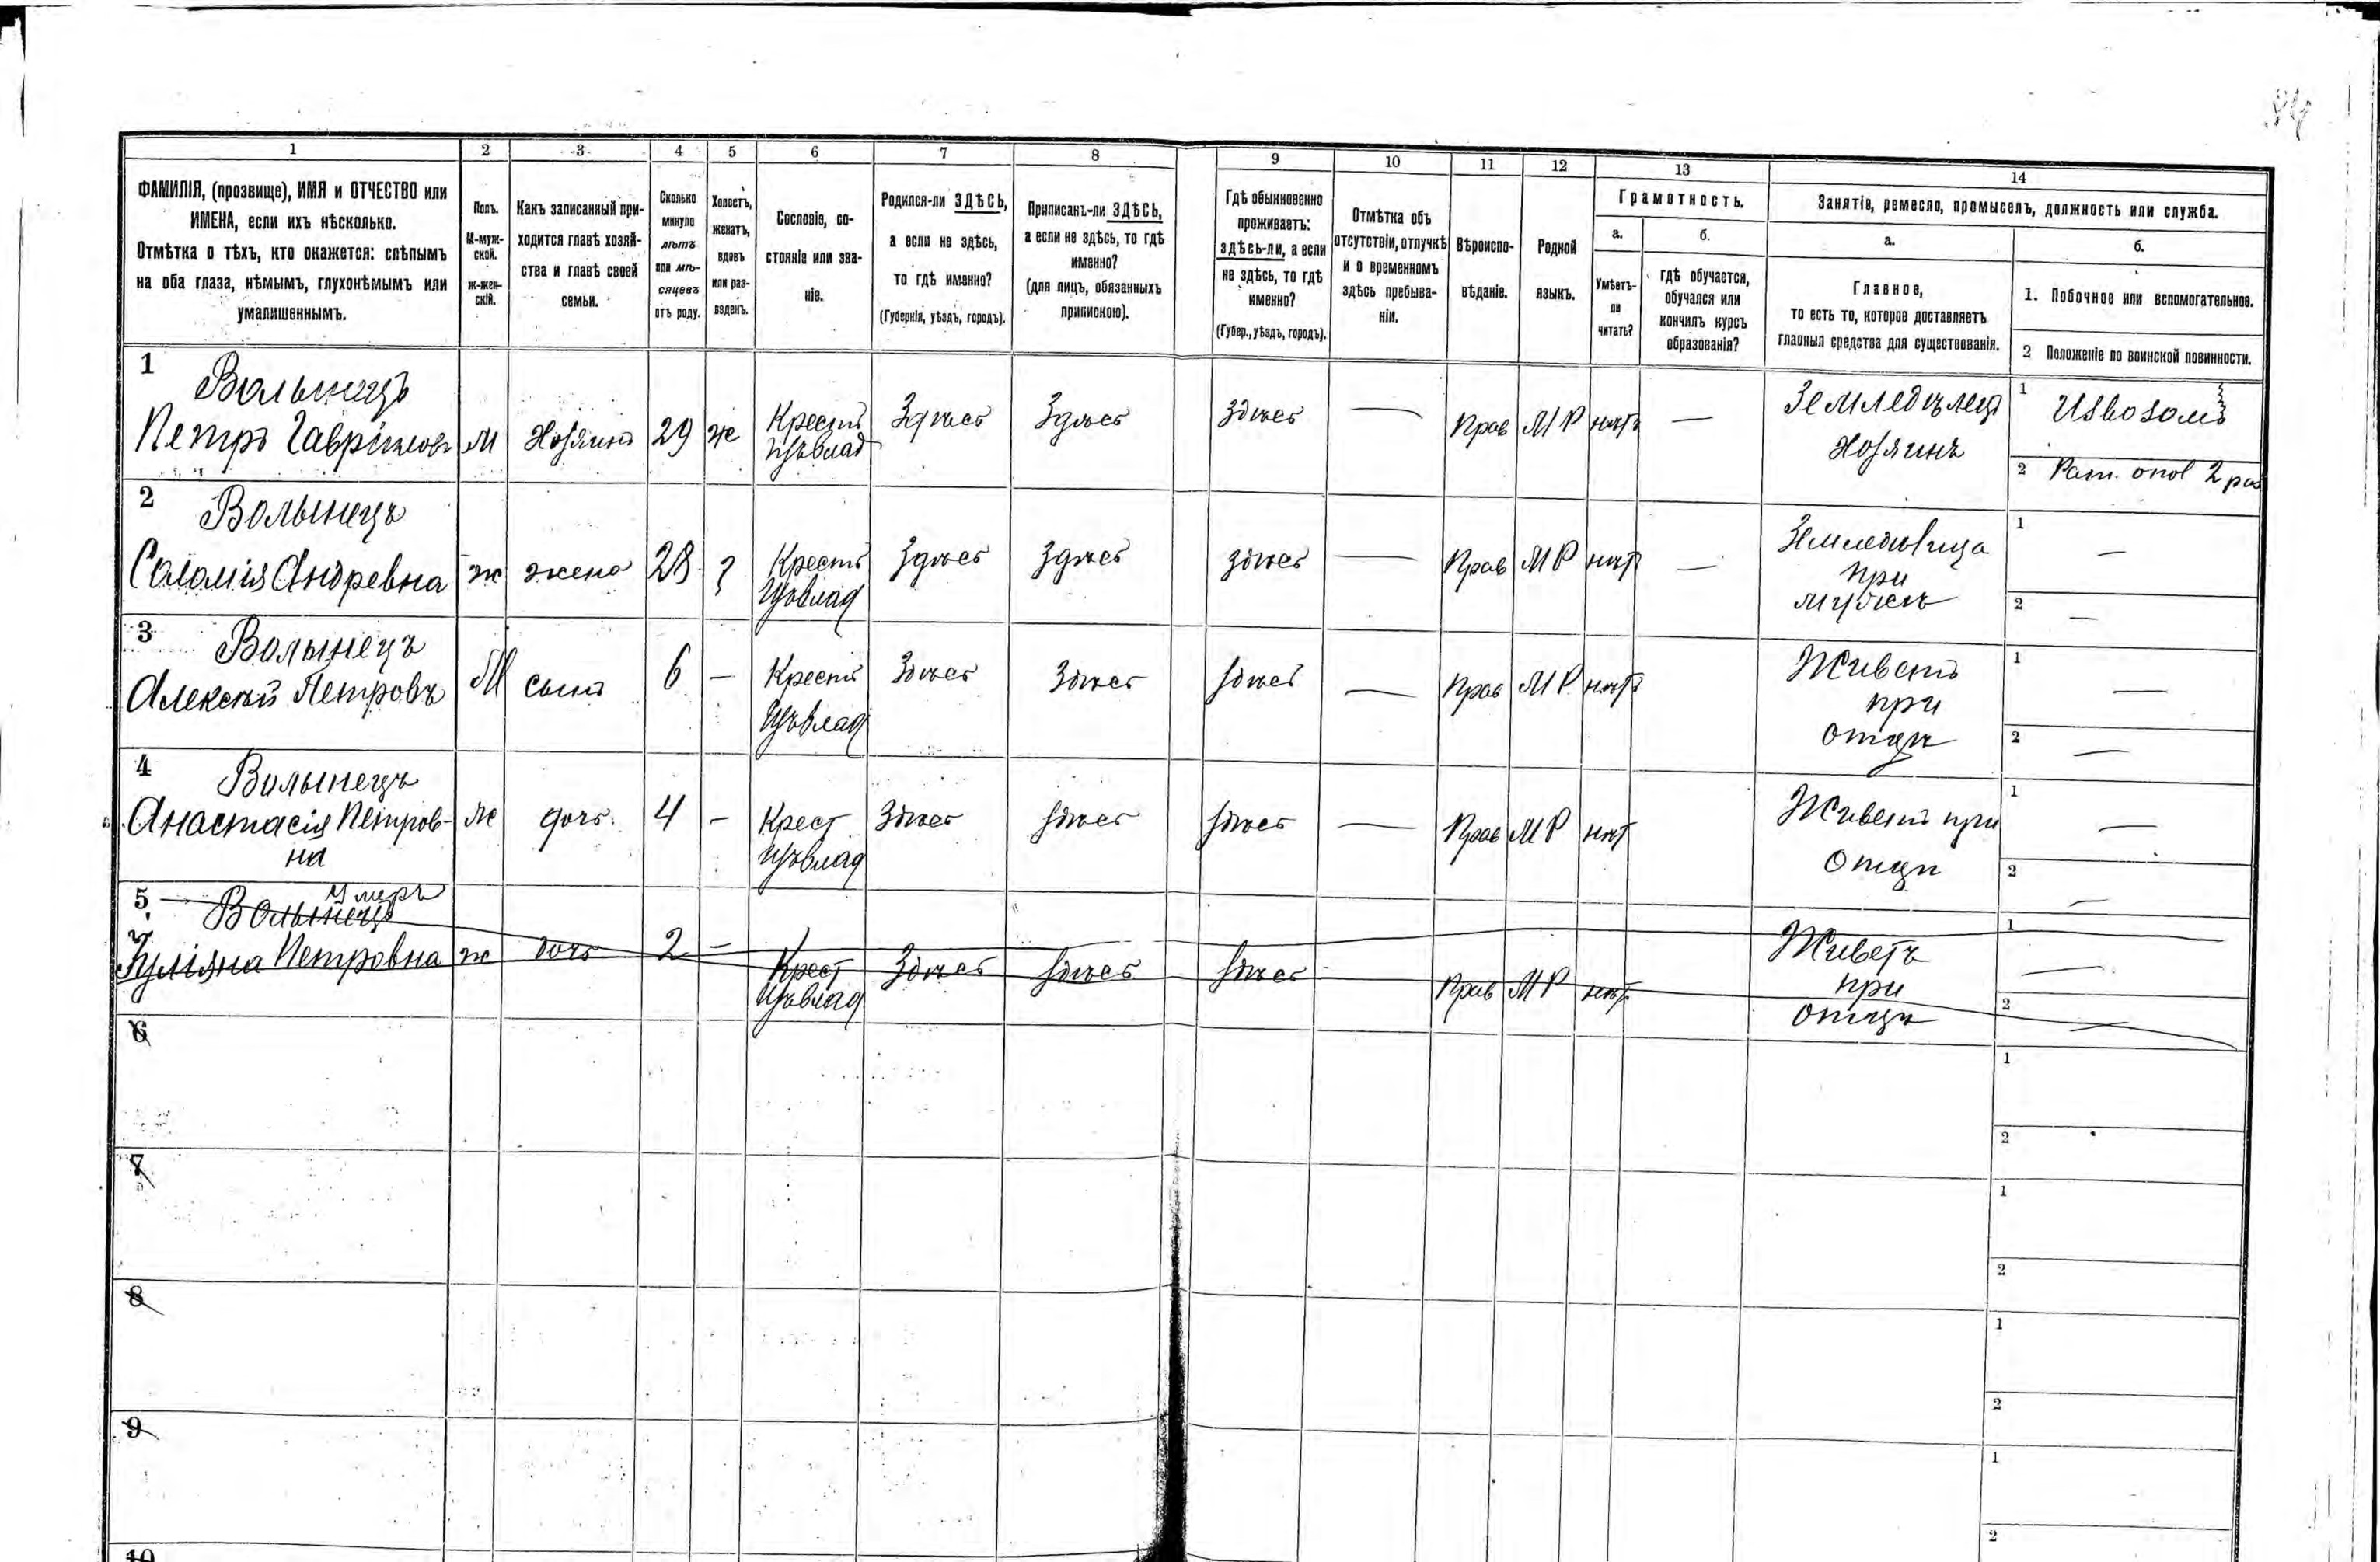 1
2
3
4
5
6
7
8
9
10
11
12
13
14
ФАМИЛІЯ, (прозвище), ИМЯ и ОТЧЕСТВО или
ИМЕНА, если ихъ нѣсколько.
Отмѣтка о тѣхъ, кто окажется: слѣпымъ
на оба глаза, нѣмымъ, глухонѣмымъ или
умалишеннымъ.
Полъ.
М-муж-
ской.
ж-жен-
скій.
Какъ записанный при-
ходится главѣ хозяй-
ства и главѣ своей
семьи.
Сколько
минуло
лѣтъ
или мѣ-
сяцевъ
отъ роду.
Холостъ,
женатъ,
вдовъ
или раз-
веденъ.
Сословіе, со-
стояніе или зва-
ніе.
Родился-ли ЗДѢСЬ,
а если не здѣсь,
то гдѣ именно?
(Губернія, уѣздъ, городъ).
Приписанъ-ли ЗДѢСЬ,
а если не здѣсь, то гдѣ
именно?
(для лицъ, обязанныхъ
припискою).
Гдѣ обыкновенно
проживаетъ:
здѣсь-ли, а если
не здѣсь, то гдѣ
именно?
(Губер., уѣздъ, городъ).
Отмѣтка объ
отсутствіи, отлучкѣ
и о временномъ
здѣсь пребыва-
ніи.
Вѣроиспо-
вѣданіе.
Родной
языкъ.
Грамотность.
а.
Умѣетъ-
ли
читать?
б.
гдѣ обучается,
обучался или
кончилъ курсъ
образованія?
Занятіе, ремесло, промыселъ, должность или служба.
а.
Главное,
то есть то, которое доставляетъ
главныя средства для существованія.
б.
1. Побочное или вспомогательное.
2 Положеніе по воинской повинности.
1
Волынецъ
Петръ Гавріиловъ
м
Хозяинъ
29
ж
Крестъ
Здѣсь
Здѣсь
Здѣсь
—
Прав
МР
нѣтъ
—
Земледѣлецъ
Хозяинъ
1 Извозомъ
2 Рат. опол 2 раз
2
Волынецъ
Саломія Андревна
ж
жена
28
З
Кресть
Здѣсь
Здѣсь
здѣсь
—
Прав
МР
нѣт
—
при
мужѣ
1 —
2 —
3
Волынецъ
Алексѣй Петровъ
М
сынъ
6
—
Крестъ
Здѣсь
Здѣсь
здѣсь
—
Прав
МР
нѣтъ
Живетъ
при
отцѣ
1 —
2 —
4
Волынецъ
Анастасія Петров-
на
ж
дочь
4
—
Крест
Здѣсь
здѣсь
здѣсь
—
Прав
МР
нѣт
Живетъ при
Отцѣ
1 —
2 —
5
Умеръ
Волынецъ
Гуліяна Петровна
ж
дочь
2
—
Крест
Здѣсь
здѣсь
здѣсь
Прав
МР
нѣт
Живетъ
при
отцѣ
1 —
2 —
6
1
2
7
1
2
8
1
2
9
1
2
10